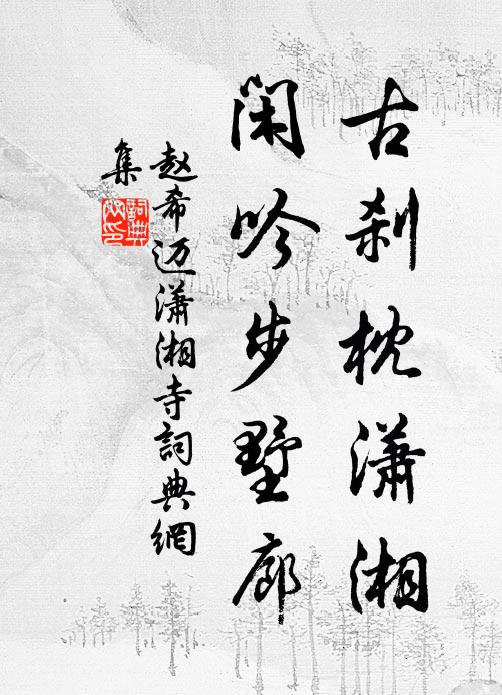 古刹枕潇湘
闲吟步墅廊
赵希迈潇湘寺詞典網
集
詞典網印